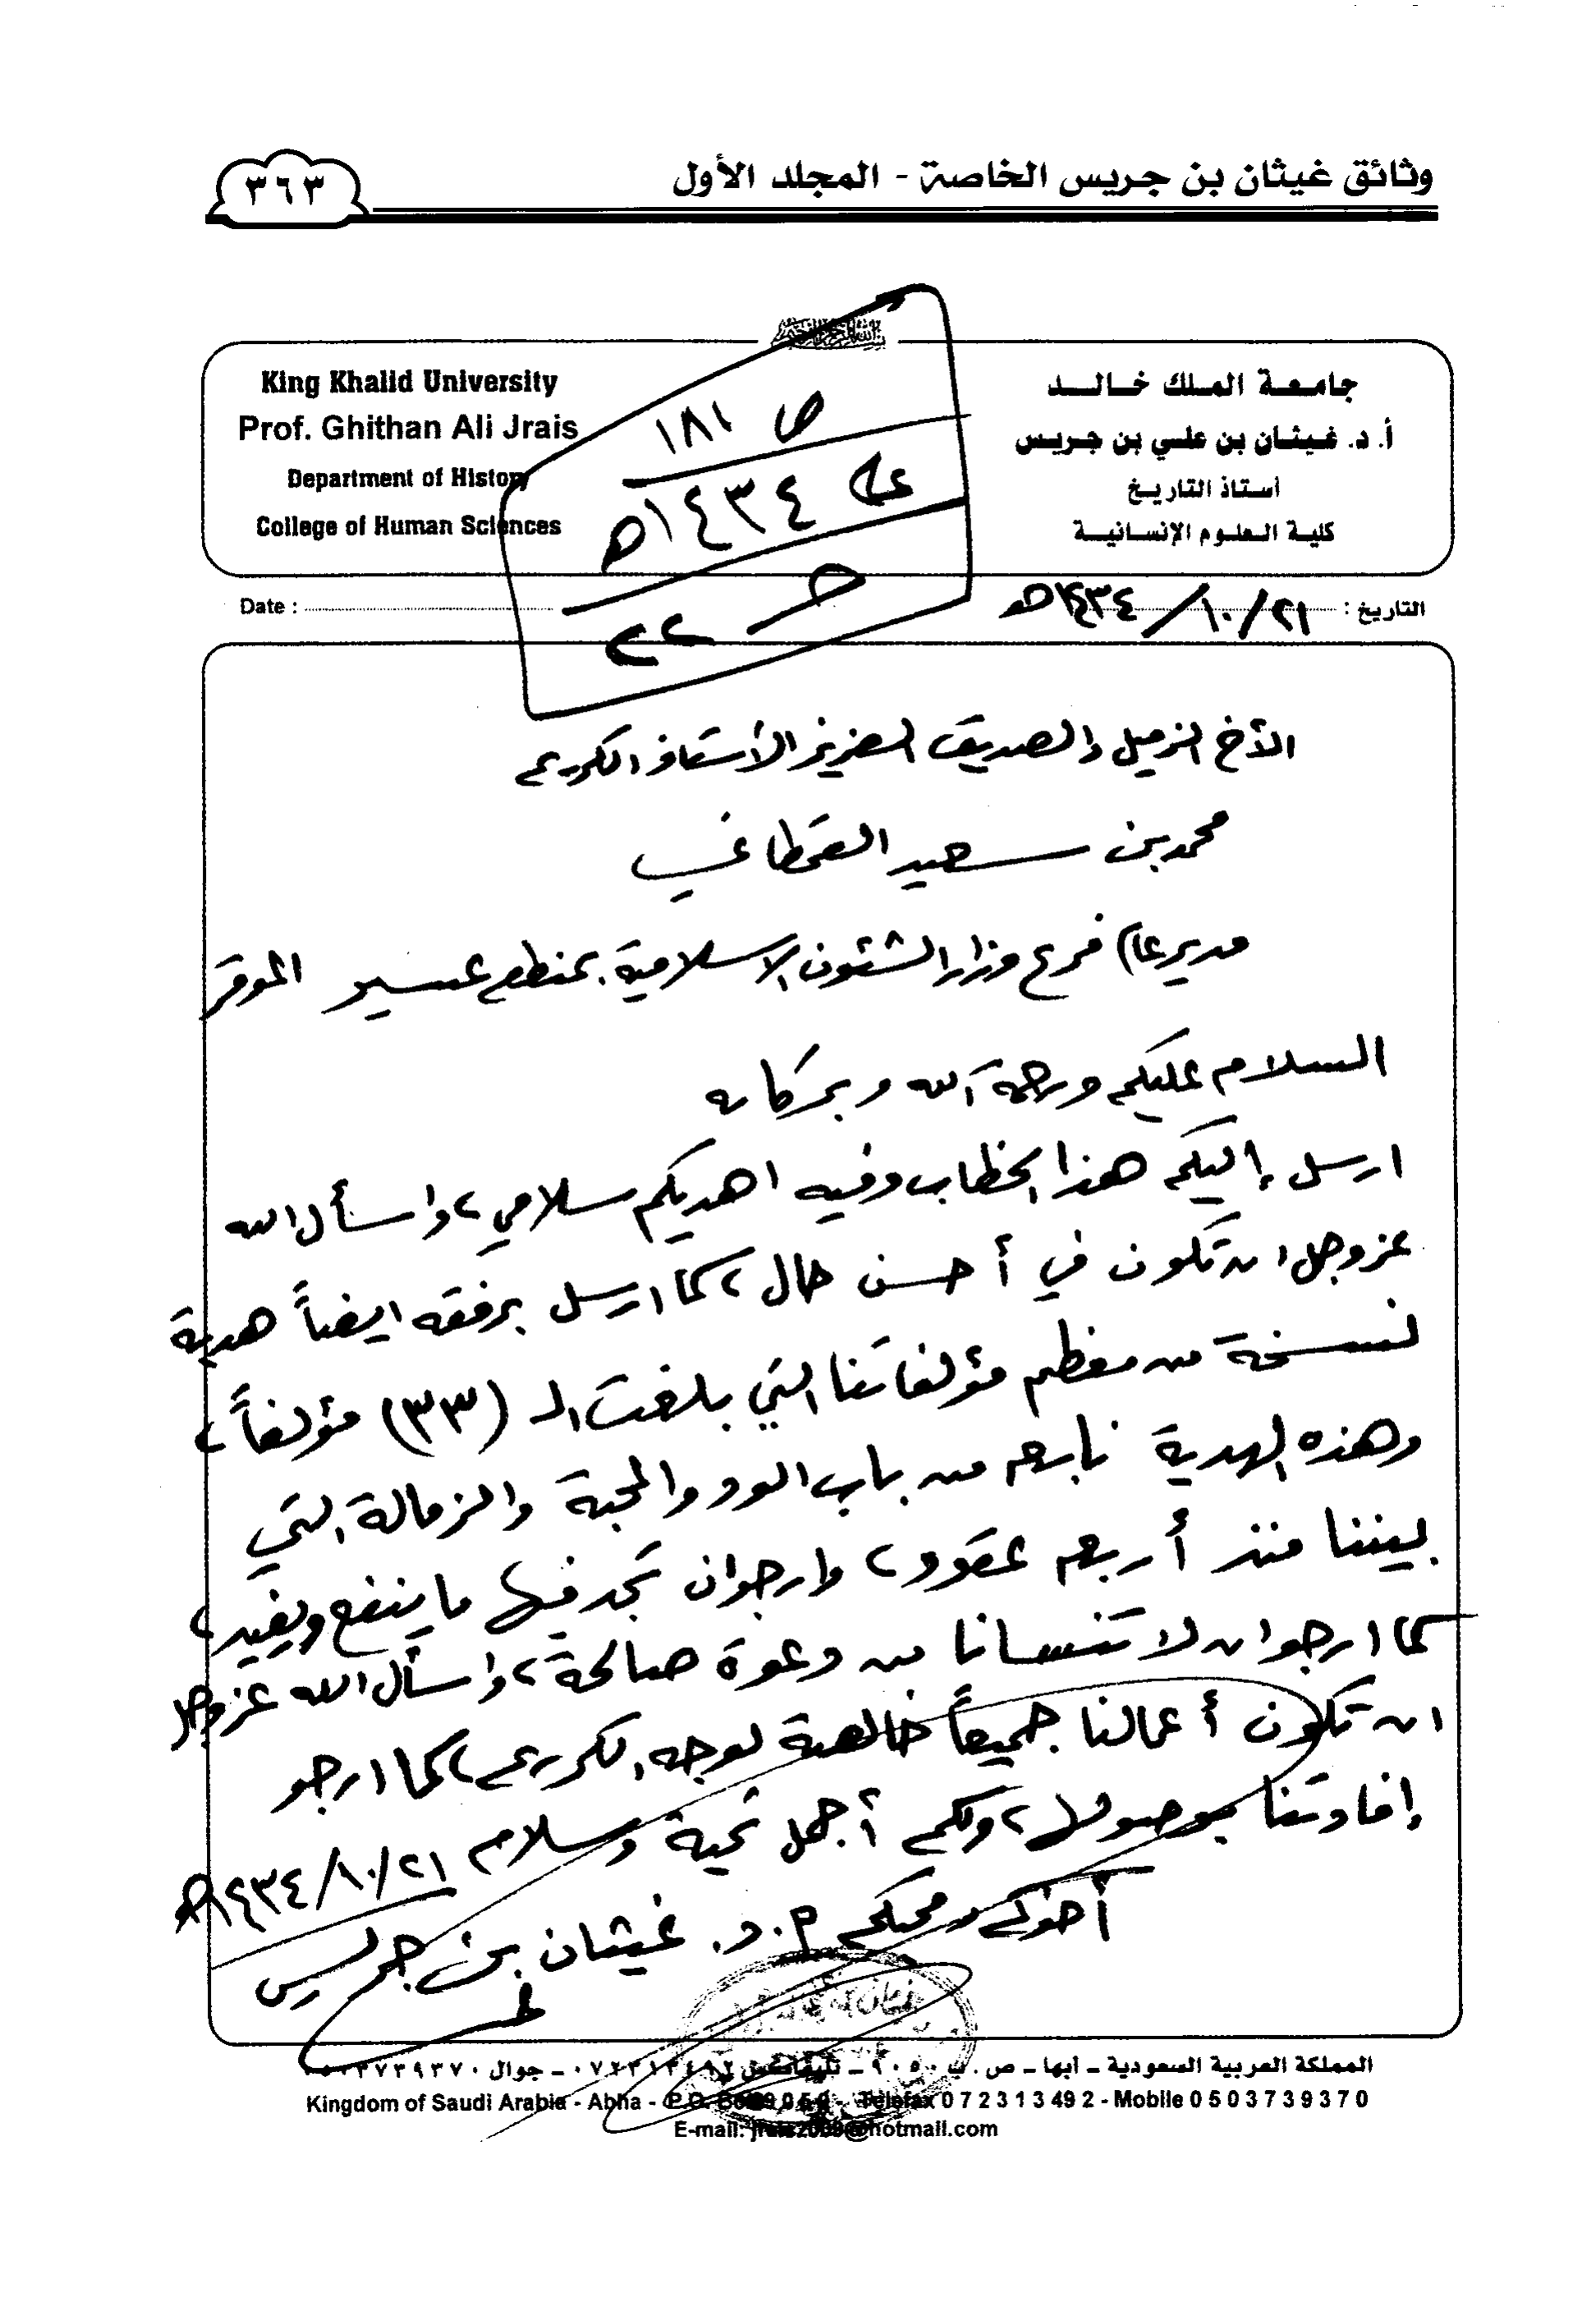 وثائق غيثان بن جريس الخاصة - المجلد الأول
٣٦٣
جامعة الملك خالد
أ. د. غيثان بن علي بن جريس
أستاذ التاريخ
كلية العلوم الإنسانية
King Khalid University
Prof. Ghithan Ali Jrais
Department of History
College of Human Sciences
ص ١٨١
١٤٣٤هـ
٢٢
التاريخ : ٢١/١٠/١٤٣٤هـ
Date :
الأخ الزميل والصديق العزيز الأستاذ الكريم
محمد بن سعيد القحطاني
مدير عام فرع وزارة الشئون الاسلامية بمنطقة عسير الموقر
السلام عليكم ورحمة الله وبركاته
ارسل إليكم هذا الخطاب وفيه اهديكم سلامي، واسأل الله
عز وجل ان تكون في أحسن حال، كما ارسل برفقه ايضاً هدية
نسخة من معظم مؤلفاتنا التي بلغت الـ (٣٣) مؤلفاً،
وهذه الهدية نابعة من باب الود والمحبة والزمالة التي
بيننا منذ أربعة عقود، وارجو ان تجد فيها ما ينفع ويفيد،
كما ارجو ان لا تنسانا من دعوة صالحة، واسأل الله عز وجل
ان تكون أعمالنا جميعاً خالصة لوجهه الكريم، كما ارجو
إفادتنا بوصولها، ولكم أجمل تحية وسلام ٢١/١٠/١٤٣٤هـ
أخوكم ومحبكم أ.د. غيثان بن جريس
المملكة العربية السعودية - أبها - ص . ب ٩٠٥٠ - تليفاكس ٠٧٢٣١٣٤٩٢ - جوال ٠٥٠٣٧٣٩٣٧٠
Kingdom of Saudi Arabia - Abha - P.O. Box 9 0 5 0 - Telefax 0 7 2 3 1 3 49 2 - Mobile 0 5 0 3 7 3 9 3 7 0
E-mail: jrais2009@hotmail.com